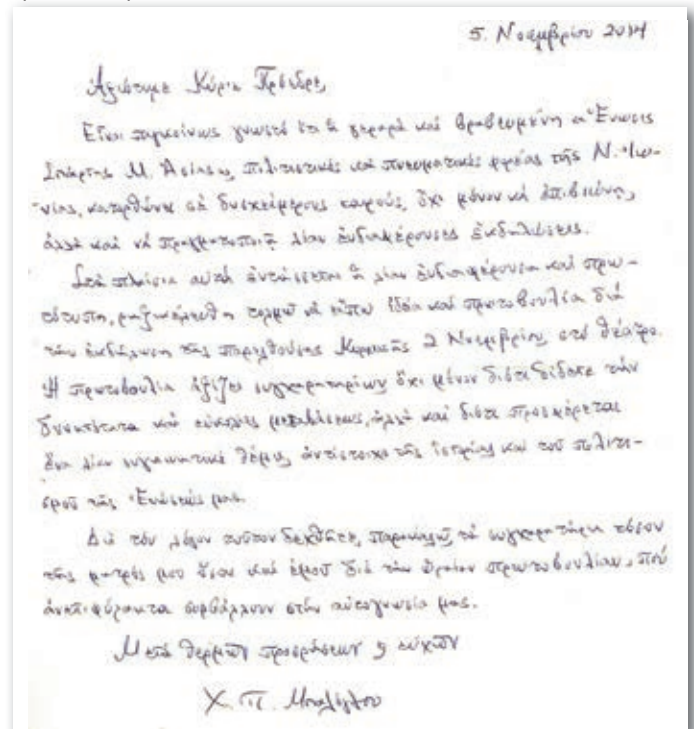 5. Νοεμβρίου 2014
Ἀξιότιμε Κύριε Πρόεδρε,
Εἶναι παγκοίνως γνωστό ὅτι ἡ γεραρά καί βραβευμένη Ἕνωσις
Σπάρτης Μ. Ἀσίας, πολιτιστικός καί πνευματικός φορέας τῆς Ν. Ἰω-
νίας, κατορθώνει σέ δυσχείμερους καιρούς, ὄχι μόνον νά ἐπιβιώνῃ,
ἀλλά καί νά πραγματοποιῇ λίαν ἐνδιαφέρουσες ἐκδηλώσεις.
Στά πλαίσια αὐτά ἐντάσσεται ἡ λίαν ἐνδιαφέρουσα καί πρω-
τότυπη, τολμῶ νά εἴπω ἰδέα καί πρωτοβουλία διά
τήν ἐκδήλωση τῆς παρελθούσης Κυριακῆς 2 Νοεμβρίου στό θέατρο.
Ἡ πρωτοβουλία ἀξίζει συγχαρητηρίων ὄχι μόνον διότι δίδεται τήν
δυνατότητα καί εὐκολίες μεταβάσεως, ἀλλά καί διότι προσφέρεται
ἕνα λίαν συγκινητικό θέμα, ἀντίστοιχο τῆς ἱστορίας καί τοῦ πολιτι-
σμοῦ τῆς Ἑνώσεώς μας.
Διά τόν λόγον τοῦτον δεχθῆτε, παρακαλῶ, τά συγχαρητήρια τόσον
τῆς μητρός μου ὅσον καί ἐμοῦ διά τήν ὡραίαν πρωτοβουλίαν, πού
ἀνεπιφύλακτα συμβάλλουν στήν αὐτογνωσία μας.
Μετά θερμῶν προσρήσεων εὐχῶν
Χ. Π. Μπαλόγλου